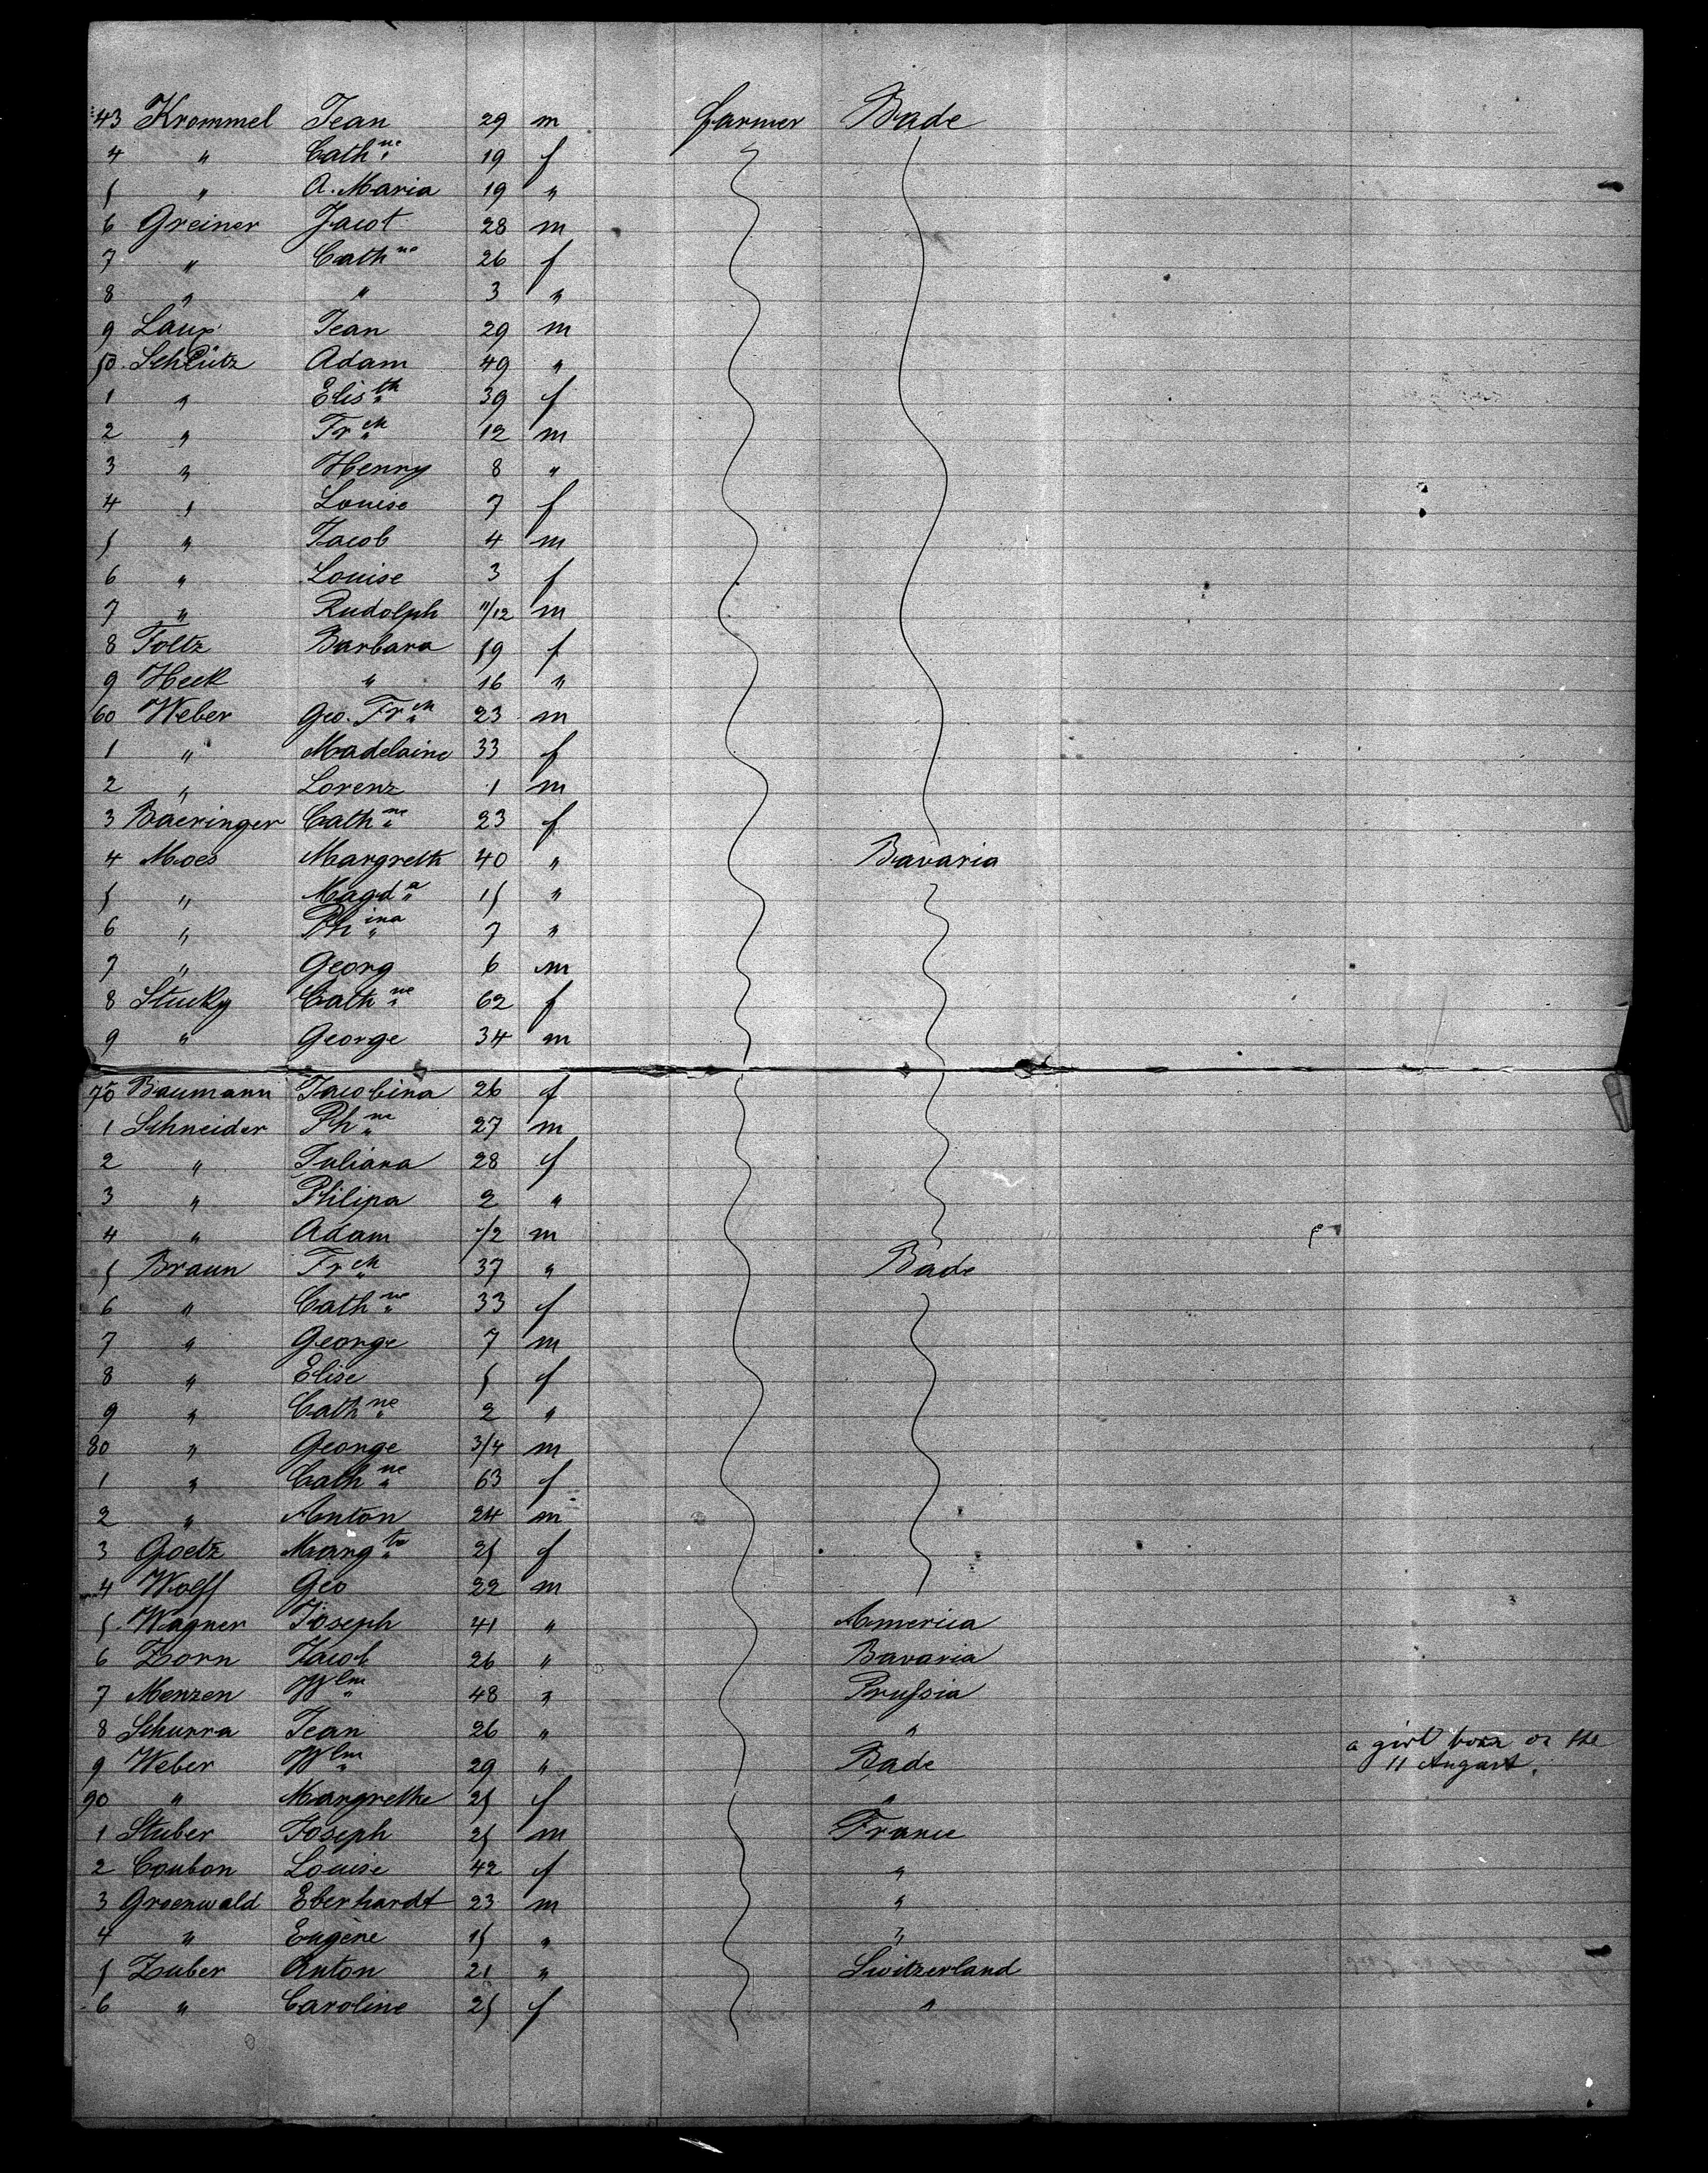 43 Krommel Jean 29 m farmer Bade
4 " Cath ne 19 f
5 " A. Maria 19 "
6 Greiner Jacob 28 m
7 " Cath ne 26 f
8 " " 3 "
9 Laux Jean 29 m
50 Schlütz Adam 49 "
1 " Elis th 39 f
2 " Fr ch 12 m
3 " Henry 8 "
4 " Louise 7 f
5 " Jacob 4 m
6 " Louise 3 f
7 " Rudolph 11/12 m
8 Foltz Barbara 59 f
9 Heck " 16 "
60 Weber Geo. Fr ch 23 m
1 " Madelaine 33 f
2 " Lorenz 1 m
3 Baeringer Cath ne 23 f
4 Moes Margreth 40 " Bavaria
5 " Magd a 15 "
6 " Ph ina 7 "
7 " Georg 6 m
8 Stucky Cath ne 62 f
9 " George 34 m
70 Baumann Jacobina 26 f
1 Schneider Ph ne 27 m
2 " Juliana 28 f
3 " Philipa 2 "
4 " Adam 1/2 m
5 Braun Fr ch 37 " Bade
6 " Cath ne 33 f
7 " George 7 m
8 " Elise 5 f
9 " Cath ne 2 "
80 " George 3/4 m
1 " Cath ne 63 f
2 " Anton 24 m
3 Goetz Marg te 25 f
4 Wolff Geo 22 m
5 Wagner Joseph 41 " America
6 Zorn Jacob 26 " Bavaria
7 Menzen Wlm 48 " Prussia
8 Schurra Jean 26 " "
9 Weber Wlm 29 " Bade a girl born on the 11 August.
90 " Margrethe 25 f "
1 Stuber Joseph 25 m France
2 Coubon Louise 42 f "
3 Groenwald Eberhardt 23 m "
4 " Eugène 15 " "
5 Zuber Anton 21 " Switzerland
6 " Caroline 25 f "